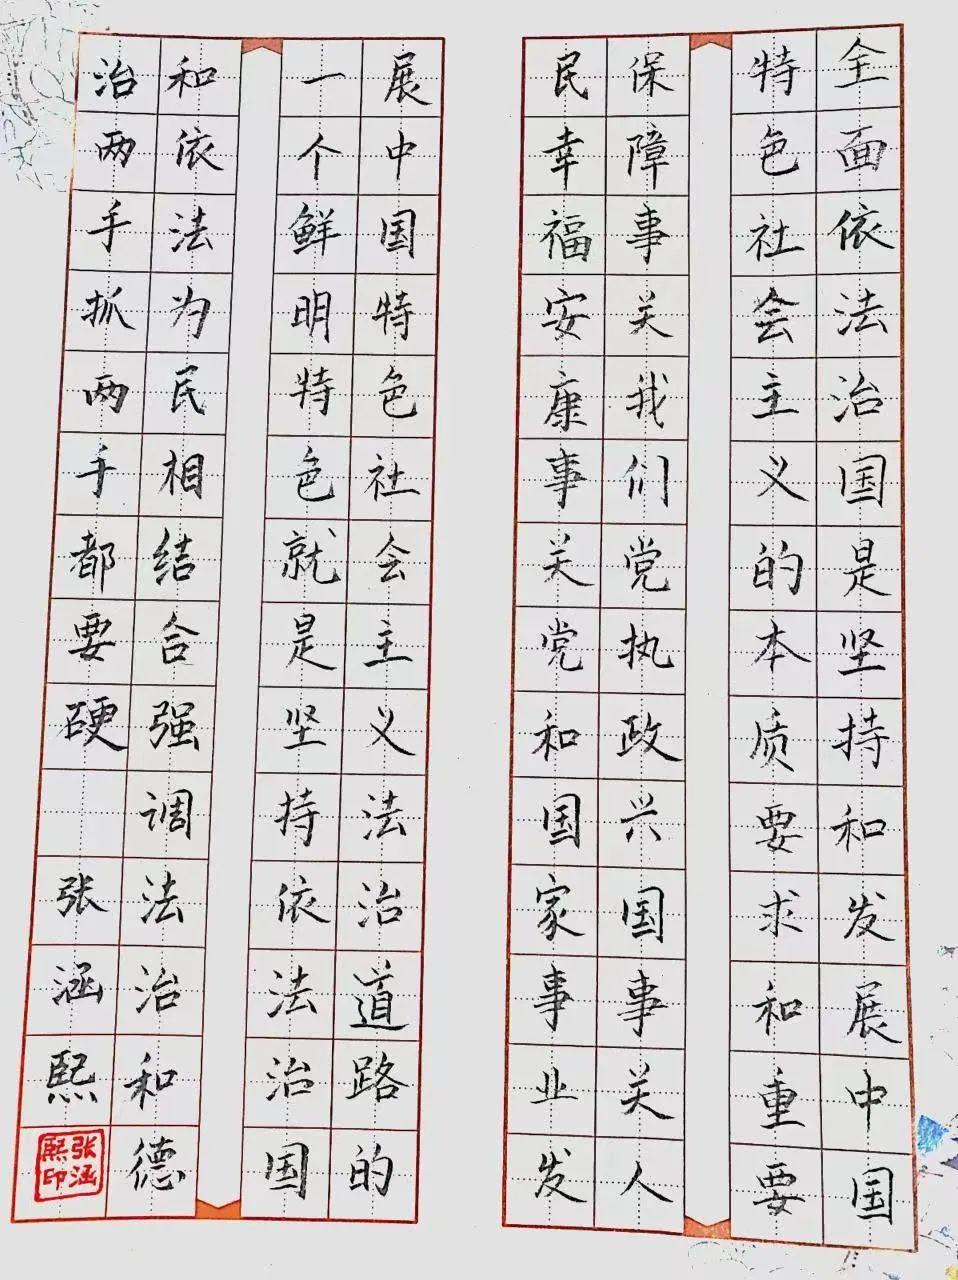 全面依法治国是坚持和发展中国
特色社会主义的本质要求和重要
保障事关我们党执政兴国事关人
民幸福安康事关党和国家事业发
展中国特色社会主义法治道路的
一个鲜明特色就是坚持依法治国
和依法为民相结合强调法治和德
治两手抓两手都要硬 张涵熙
张涵熙印